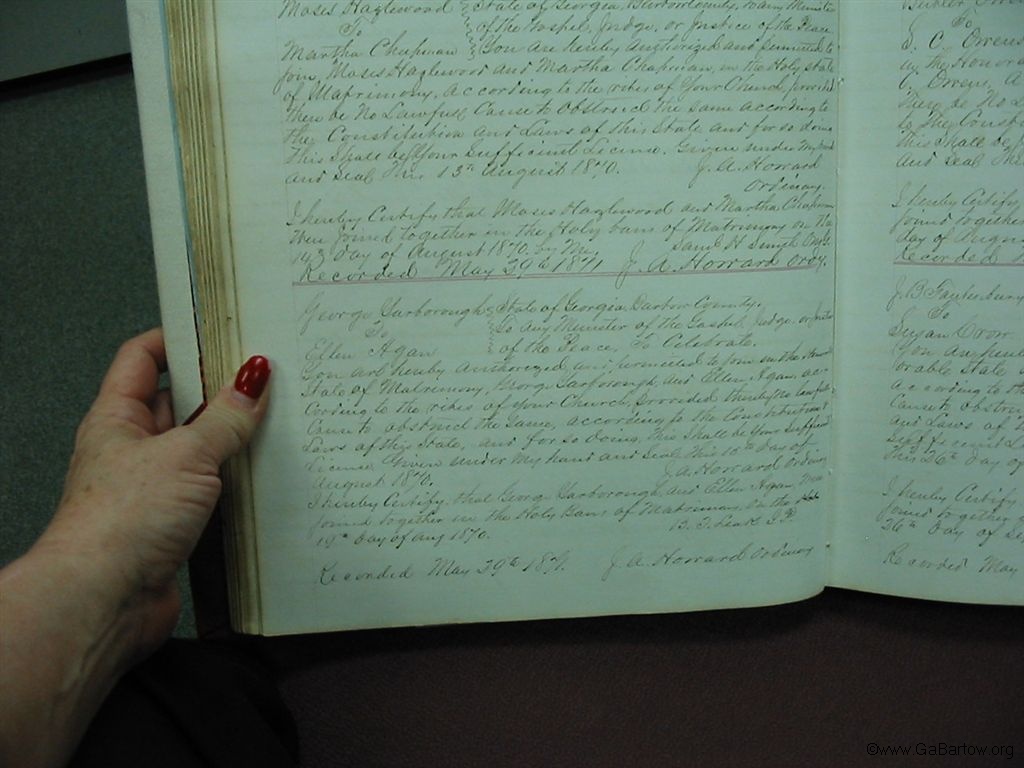 Moses Hazlewood State of Georgia, Bartow County, to any Minister
To of the Gospel, Judge, or Justice of the Peace
Martha Chapman You are hereby authorized and permitted to
join, Moses Hazlewood and Martha Chapman, in the Holy state
of Matrimony, according to the rites of Your Church, provided
there be No Lawful Cause to obstruct the same according to
the Constitution and Laws of this State and for so doing
this shall be Your Sufficient License. Given under My hand
and seal this 13th August 1870. J. A. Howard
Ordinary.
I hereby Certify that Moses Hazlewood and Martha Chapman
were joined together in the Holy bans of Matrimony on the
14th day of August 1870. by Me Saml H Smith
Recorded May 29th 1871 J. A. Howard Ordy.
George Yarborough State of Georgia Bartow County.
To To Any Minister of the Gospel, Judge, or Justice
Ellen Agan of the Peace, To Celebrate.
You are hereby authorized and permitted to join in the
State of Matrimony, George Yarborough, and Ellen Agan, ac-
cording to the rites of Your Church, provided there be no lawful
Cause to obstruct the same, according to the Constitution
Laws of this State, and for so doing, this shall be Your Sufficient
License Given under My hand and seal this 18th day of
August 1870. J. A. Howard Ordinary
I hereby Certify that George Yarborough, and Ellen Agan, were
joined together in the Holy Bans of Matrimony on the
19th day of Aug 1870. J. P.
Recorded May 29th 1871. J. A. Howard Ordinary
To
S. C. Owens
by the Honor
Owens, A
There be No L
to the Const
this shall be
and seal this
I hereby Certify
joined together
day of August
Recorded
J. B.
To
Susan Crow
You are here
orable State
according to th
Cause to obstru
and Laws of
Sufficient L
this 26th day of
I hereby Certify
joined together
26th day of Se
Recorded May
©www.GaBartow.org